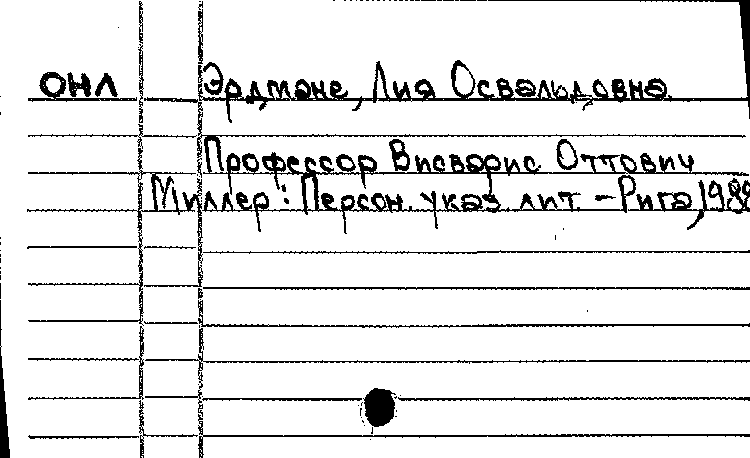 ОНЛ Эрдмане, Лия Освальдовна
Профессор Висварис Оттович
Миллер: Персон. указ. лит. – Рига, 1988